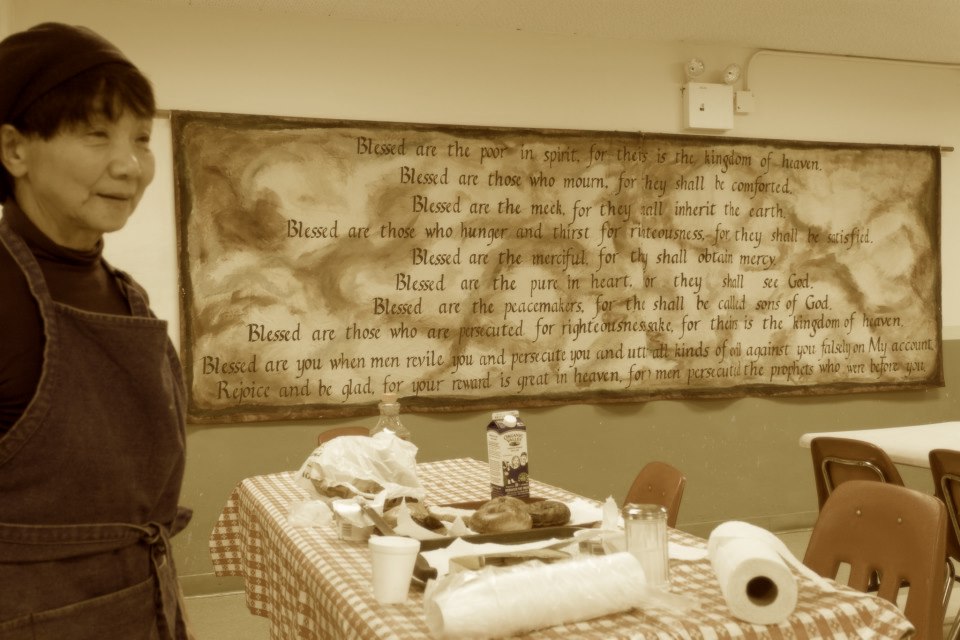 Blessed are the poor in spirit, for theirs is the kingdom of heaven.
Blessed are those who mourn, for hey shall be comforted.
Blessed are the meek, for they all inherit the earth.
Blessed are those who hunger and thirst for righteousness, for they shall be satisfied.
Blessed are the merciful, for thy shall obtain mercy.
Blessed are the pure in heart, or they shall see God.
Blessed are the peacemakers, for the shall be called sons of God.
Blessed are those who are persecuted for righteousness sake, for theirs is the kingdom of heaven.
Blessed are you when men revile you and persecute you and utt all kinds of evil against you falsely on My account.
Rejoice and be glad, for your reward is great in heaven, for men persecuted the prophets who were before you.
ORGANIC